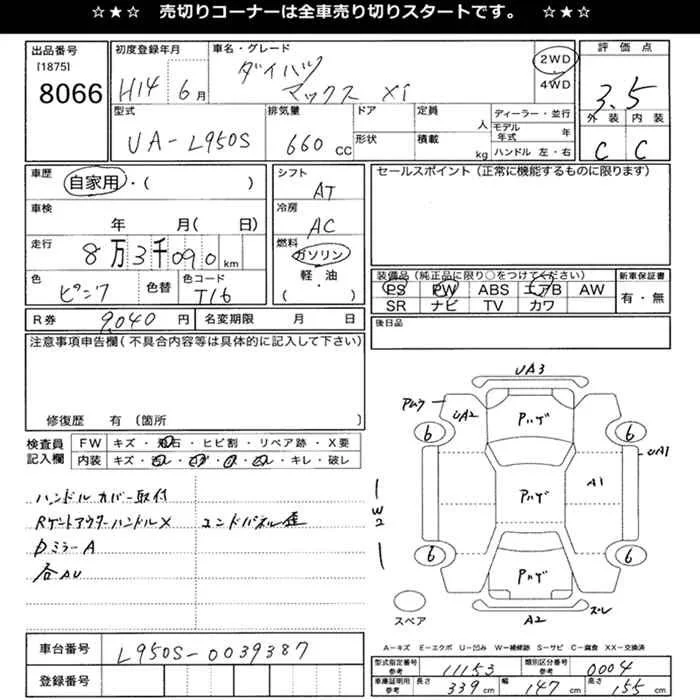 ☆★☆ 売切りコーナーは全車売り切りスタートです。 ☆★☆
出品番号
[1875]
8066
初度登録年月
H14年 6月
車名・グレード
ダイハツ
マックス Xi
2WD
4WD
評価点
3.5
外装 内装
C C
型式
UA-L950S
排気量
660 CC
ドア
形状
定員 人
積載 kg
ディーラー・並行
モデル年式 年
ハンドル 左・右
車歴
自家用・( )
車検
年 月( 日)
走行
8万3千090 km
色
ピンク
色替
色コード
T16
シフト
AT
冷房
AC
燃料
ガソリン
軽・油
( )
セールスポイント(正常に機能するものに限ります)
装備品(純正品に限り○をつけてください)
PS PW ABS エアB AW
SR ナビ TV カワ
新車保証書
有・無
R券 9,040 円 名変期限 月 日
後日品
注意事項申告欄(不具合内容等は具体的に記入して下さい)
修復歴 有(箇所 )
検査員記入欄
FW キズ・飛石・ヒビ割・リペア跡・X要
内装 キズ・ ・キレ・破し
ハンドルカバー取付
Rゲートアウターハンドル X
エンドパネル歪
ミラーA
各AU
UA3
UA2
Pハゲ
6
6
UA1
W2
Pハゲ
A1
6
6
Pハゲ
スペア
A2
ズレ
A-キズ E-エクボ U-凹み W-補修跡 S-サビ C-腐食 XX-交換済
車台番号
L950S-0039387
登録番号
型式指定番号 参考 11153
類別区分番号 参考 0004
車庫証明用 参考 長さ 339 cm 幅 147 cm 高さ 155 cm